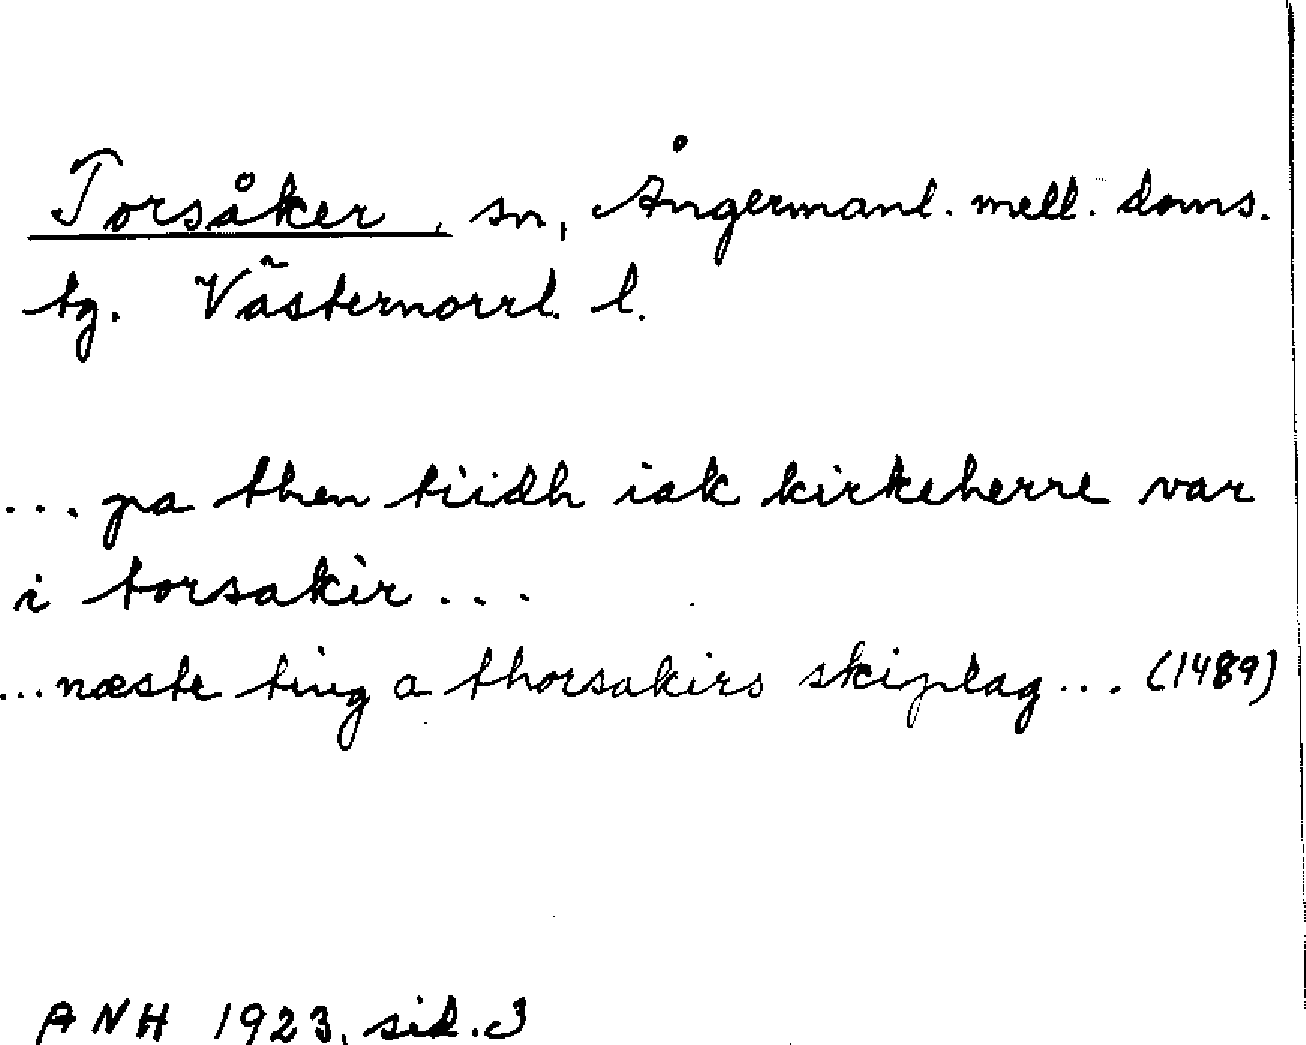 Torsåker, sn, Ångermanl. mell. doms.
tg. Västernorrl. l.
... pa then tiidh iak kirkeherre var
i torsakir ...
... næste ting a thorsakirs skiplag ... (1489)
ANH 1923, sid. 3